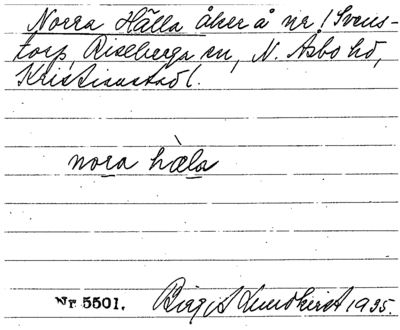 Norra Hälla åker å nr 1 Svens-
torp, Riseberga sn, N. Åsbo hd,
Kristianstad l.
nora hæla
Nr 5501. Birgit Lundkvist 1935.